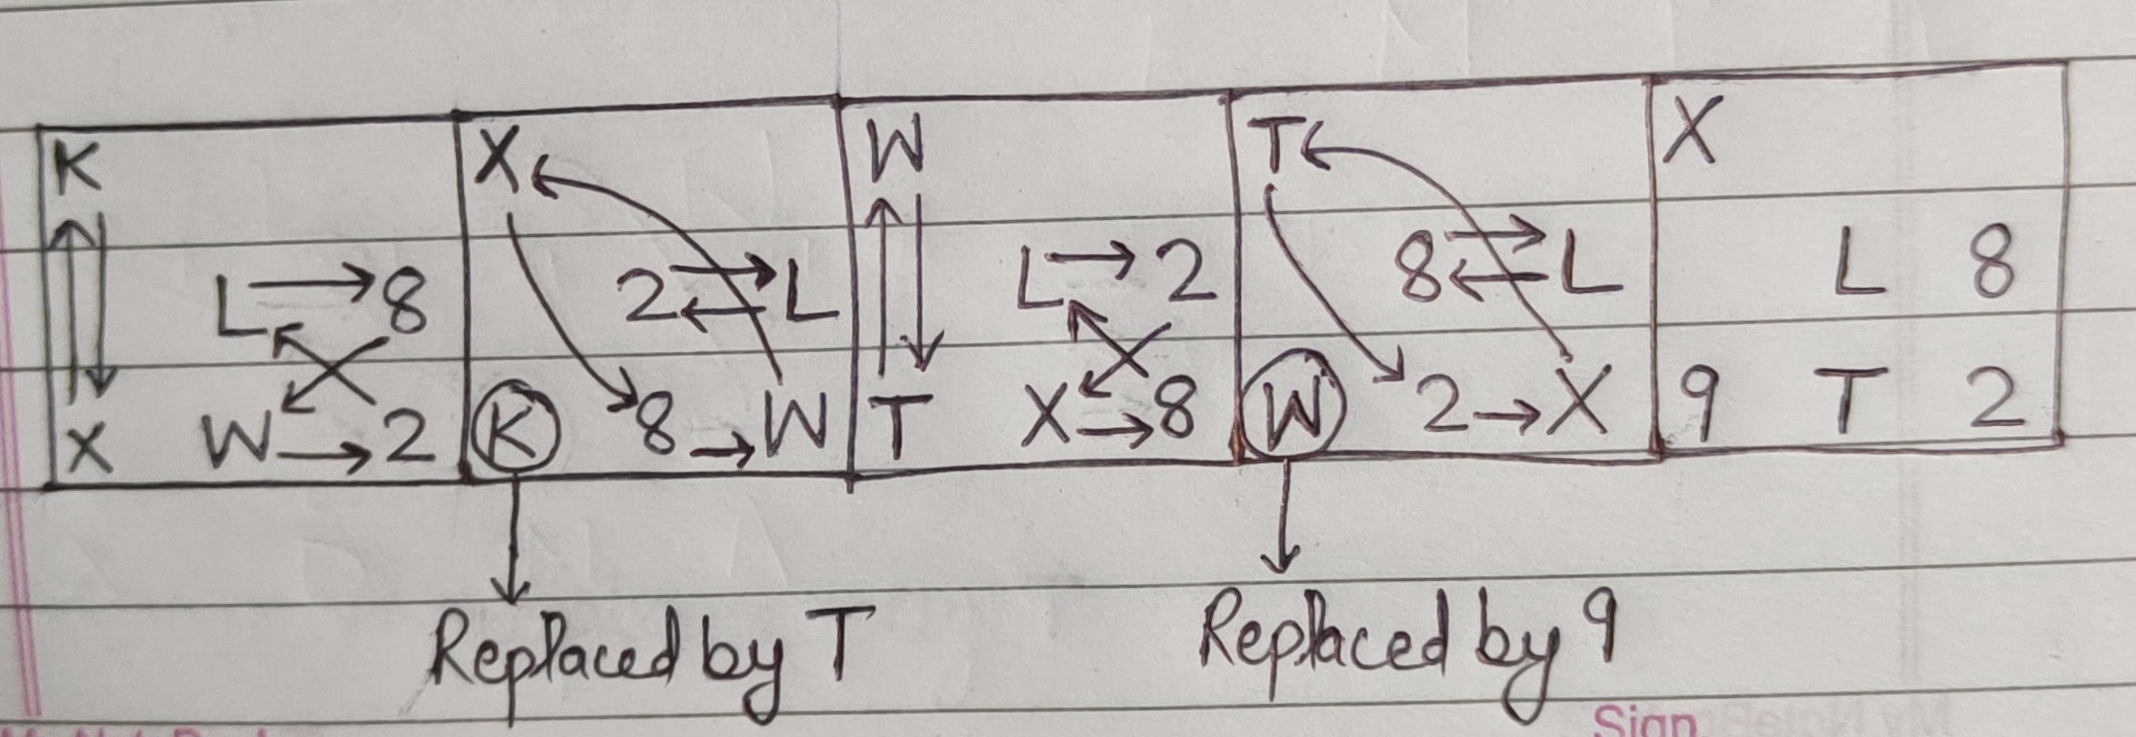 K X W T X
L → 8 2 ⇄ L L → 2 8 ⇄ L L 8
X W → 2 K 8 → W T X → 8 W 2 → X 9 T 2
Replaced by T Replaced by 9
Sign